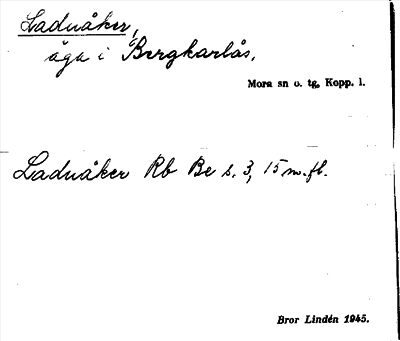 Laduåker,
äga i Bergkarlås.
Mora sn o. tg, Kopp. l.
Laduåker Rb Be s. 3, 15 m. fl.
Bror Lindén 1945.